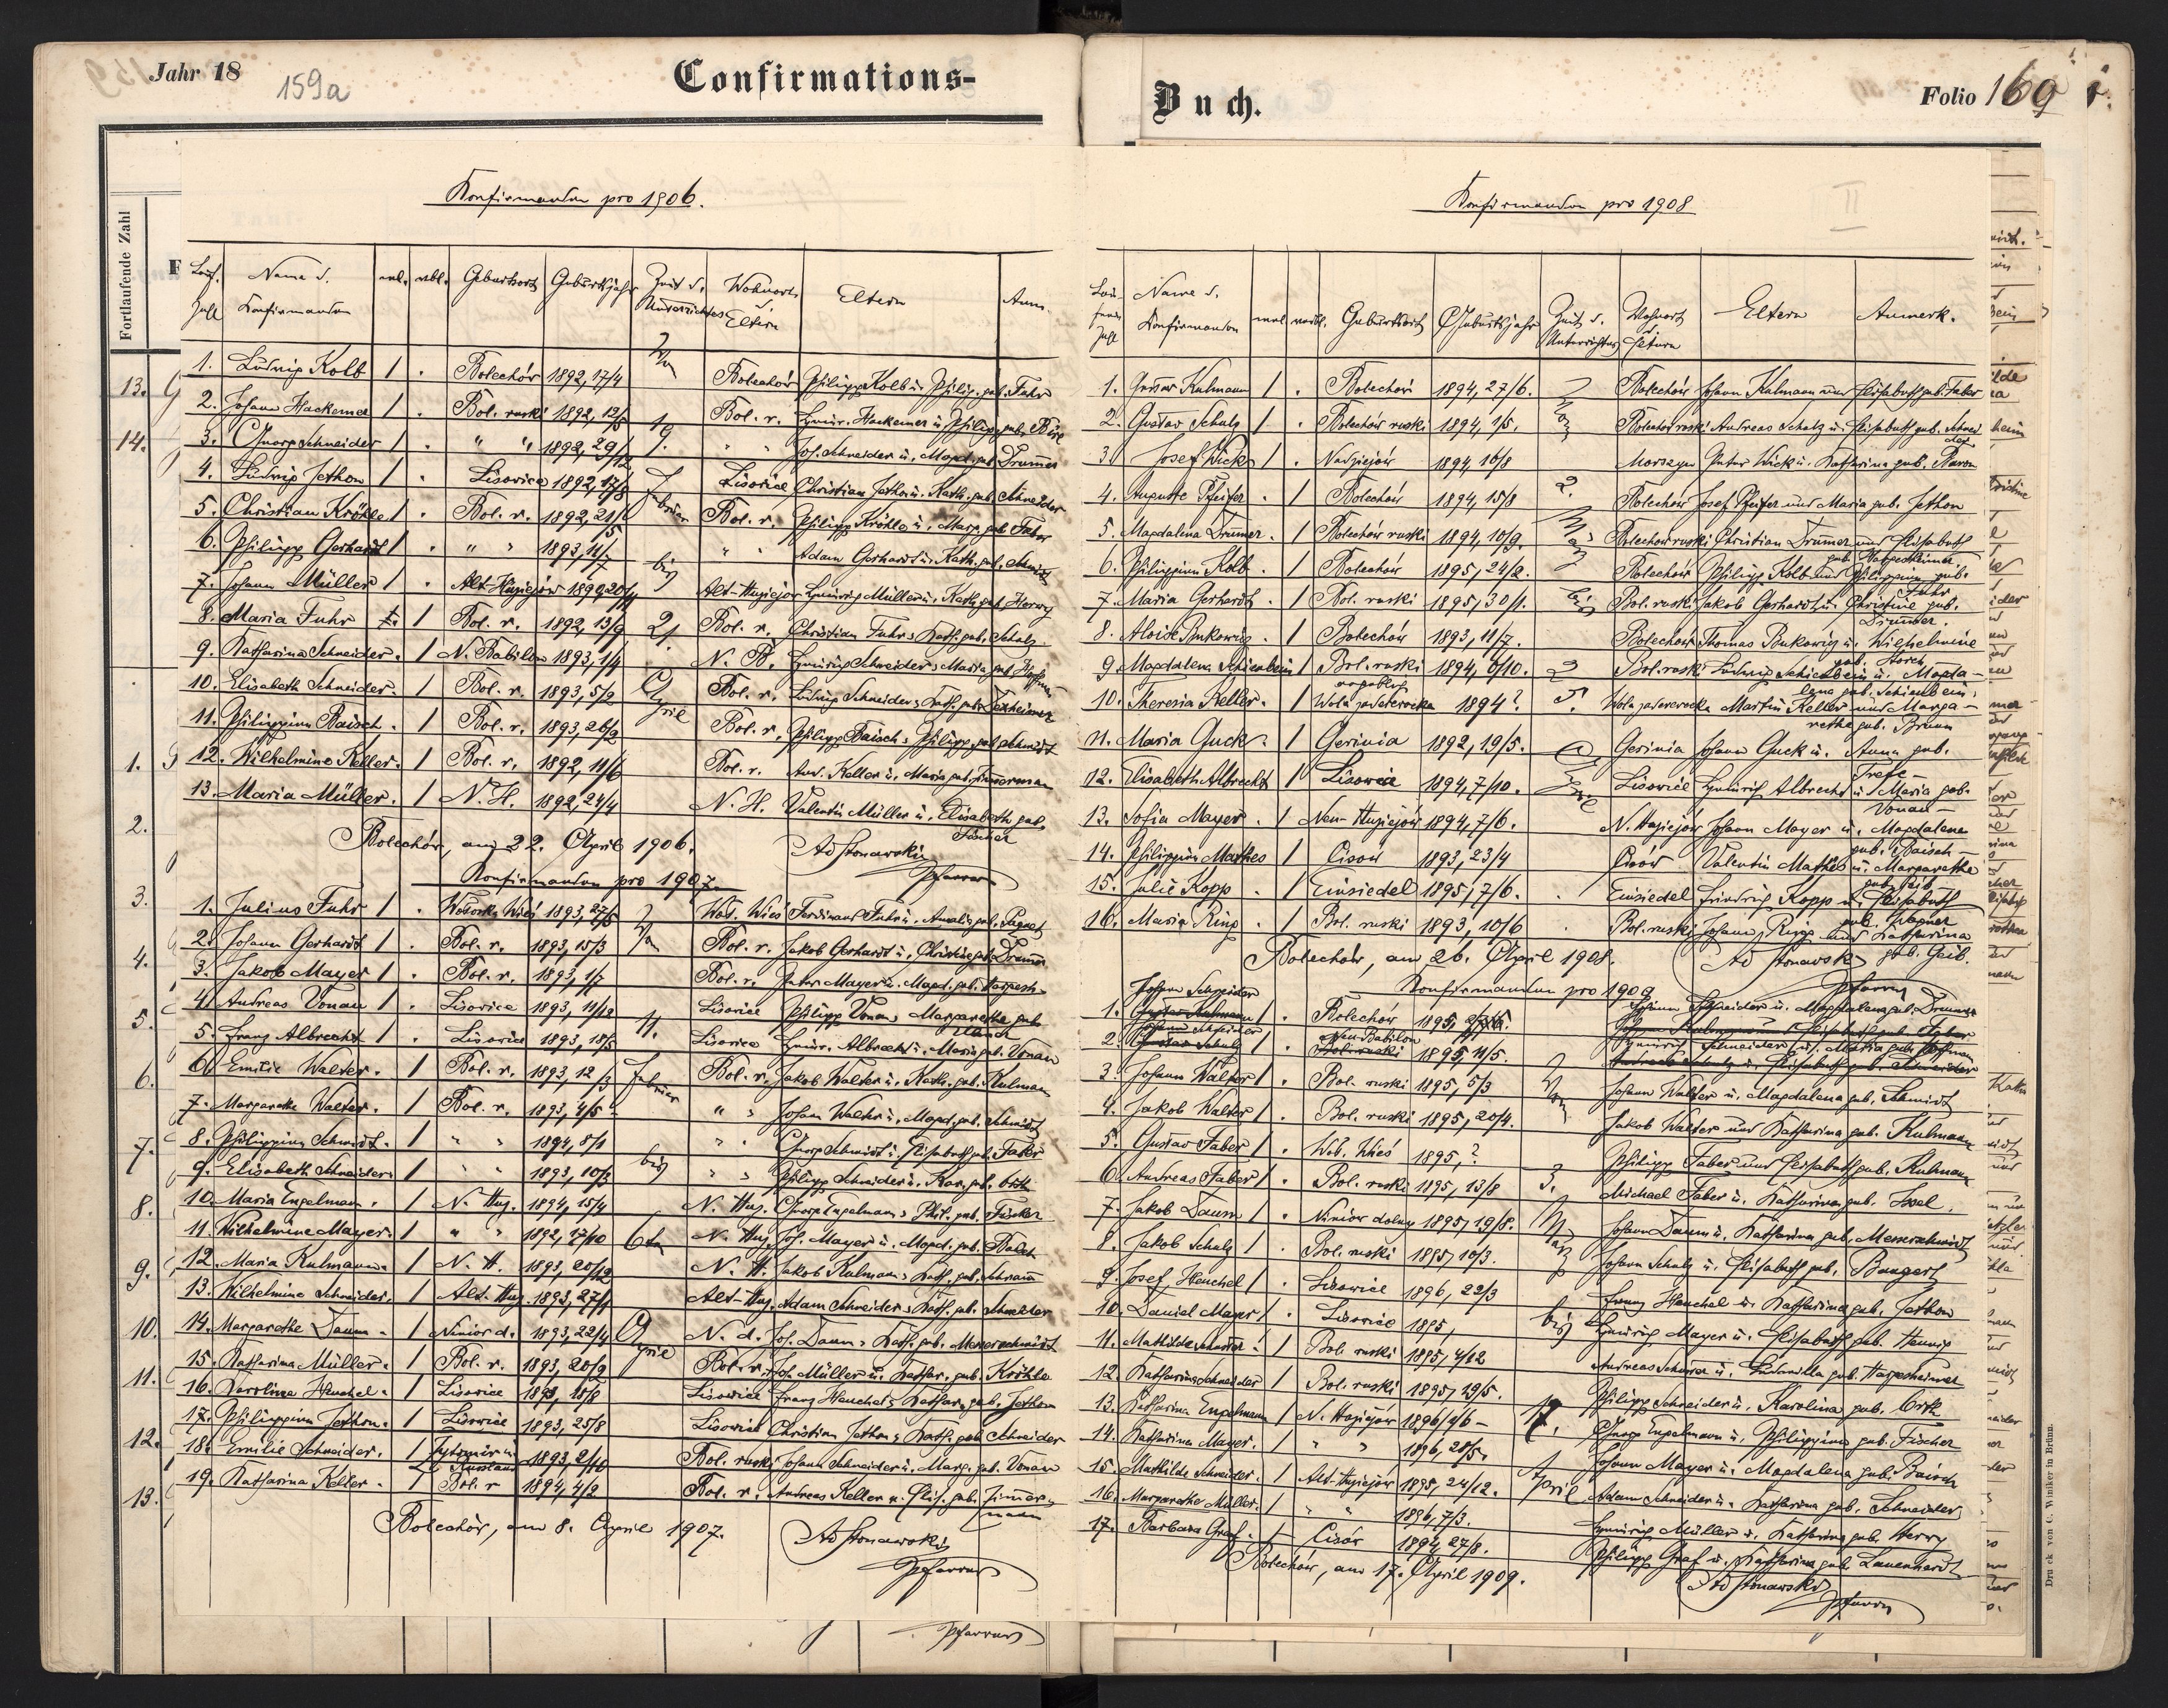 Jahr 18
159a
Confirmations-
Fortlaufende Zahl
Konfirmanden pro 1906.
Lauf. Zahl Name d. Konfirmanden ml. wbl. Geburtsort Geburtsjahr Zeit d. Unterrichtes Wohnort d. Eltern Eltern Anm.
1. Ludwig Kolb 1 . Bolechów 1892, 17/4 Bolechów Philipp Kolb u. Philip. geb. Fuhr
2. Johann Hackemer 1 . Bol. ruski 1892, 12/5 Bol. r. Heinr. Hackemer u. Philipp. geb.
3. Georg Schneider 1 . " " 1892, 29/12 " " Joh. Schneider u. Magd. geb. Drumer
4. Ludwig Jethon 1 . Lisowice 1892, 17/8 Lisowice Christian Jethon u. Kath. geb. Schneider
5. Christian Kröhle 1 . Bol. r. 1892, 21/ Bol. r. Philipp Kröhle u. Marg. geb. Faber
6. Philipp Gerhardt 1 . " " 1893, " " Adam Gerhardt u. Kath. geb. Schmidt
7. Johann Müller 1 . Alt-Hugiejów 1892, 20/ Alt-Hugiejow Heinrich Müller u. Kath. geb. Herwy
8. Maria Fuhr 1 Bol. r. 1892, 13/9 Bol. r. Christian Fuhr u. Kath. geb. Schulz
9. Katharina Schneider . 1 N. Babilon 1893, 1/4 N. B. Heinrich Schneider u. Maria geb. Hofmann
10. Elisabeth Schneider . 1 Bol. r. 1893, 5/2 Bol. r. Ludwig Schneider u. Kath. geb. Dexheimer
11. Philippine Baisch . 1 Bol. r. 1893, 26/2 Bol. r. Philipp Baisch u. Philipp. geb. Schmidt
12. Wilhelmine Keller . 1 Bol. r. 1892, 11/6 Bol. r. And. Keller u. Maria geb. Zimmerman
13. Maria Müller . 1 N. H. 1892, 24/4 N. H. Valentin Müller u. Elisabeth geb. Fischer
Vom 19. Februar bis 21. April
Bolechów, am 22. April 1906.
Ad Stonawski
Pfarrer
Konfirmanden pro 1907.
1. Julius Fuhr 1 . Wołoska Wieś 1893, 27/5 Woł. Wieś Ferdinand Fuhr u. Amalia geb.
2. Johann Gerhardt 1 . Bol. r. 1893, 15/3 Bol. r. Jakob Gerhardt u. Christine geb. Drumer
3. Jakob Mayer 1 . Bol. r. 1893, 1/7 Bol. r. Peter Mayer u. Magd. geb. Hargesh.
4. Andreas Vonau 1 . Lisowice 1893, 11/12 Lisowice Philipp Vonau u. Margarethe geb.
5. Franz Albrecht 1 . Lisowice 1893, 18/5 Lisowice Heinr. Albrecht u. Maria geb. Vonau
6. Emilie Walter . 1 Bol. r. 1893, 12/3 Bol. r. Jakob Walter u. Kath. geb. Kulmann
7. Margarethe Walter . 1 Bol. r. 1893, 4/5 " " Johann Walter u. Magd. geb. Schmidt
8. Philippine Schmidt . 1 " " 1894, 8/1 " " Georg Schmidt u. Elisabeth geb. Faber
9. Elisabeth Schneider . 1 " " 1893, 10/3 " " Philipp Schneider u. Kar. geb. Orth
10. Maria Engelman . 1 N. Hug. 1894, 15/4 N. Hug. Georg Engelman u. Phil. geb. Fischer
11. Wilhelmine Mayer . 1 " " 1892, 17/10 N. Hug. Joh. Mayer u. Magd. geb. Baisch
12. Maria Kulmann . 1 N. H. 1893, 25/12 N. H. Jakob Kulmann u. Kath. geb. Schramm
13. Wilhelmine Schneider . 1 Alt-Hug. 1893, 27/1 Alt-Hug. Adam Schneider u. Kath. geb. Schneider
14. Margarethe Daum . 1 Niniow d. 1893, 22/4 N. d. Joh. Daum u. Kath. geb. Messerschmidt
15. Katharina Müller . 1 Bol. r. 1893, 20/2 Bol. r. Joh. Müller u. Kathar. geb. Kröhle
16. Karolina Heuchel . 1 Lisowice 1893, 15/8 Lisowice Franz Heuchel u. Kathar. geb. Jethon
17. Philippine Jethon . 1 Lisowice 1893, 25/8 Lisowice Christian Jethon u. Kath. geb. Schneider
18. Emilie Schneider . 1 Zytomir in Russland 1893, 2/10 Bol. ruski Johann Schneider u. Marg. geb. Vonau
19. Katharina Keller . 1 Bol. r 1894, 4/2 Bol. r. Andreas Keller u. Elis. geb. Zimmermann
Vom 11. Februar bis 6ten April
Bolechów, am 8. April 1907.
Ad Stonawski
Pfarrer
13.
14.
1.
2.
3.
4.
5.
6.
7.
8.
9.
10.
11.
12.
13.
Pfarrer
Buch.
Folio 169
II
Konfirmanden pro 1908
Laufende Zahl Name d. Konfirmanden mnl. weibl. Geburtsort Geburtsjahr Zeit d. Unterrichtes Wohnort d. Eltern Eltern Anmerk.
1. Gustav Kulmann 1 . Bolechów 1894, 27/6. Bolechów Johann Kulmann und Elisabeth geb. Faber
2. Gustav Schulz 1 . Bolechów ruski 1894, 1/5. Bolechów ruski Andreas Schulz u. Elisabeth geb. Schneider
3. Josef Wick 1 . Nadziejów 1894, 16/8 Morszyn Peter Wick u. Katharina geb. Baron
4. Auguste Pfeifer . 1 Bolechów 1894, 15/8 Bolechów Josef Pfeifer und Maria geb. Jethon
5. Magdalena Drumer . 1 Bolechów ruski 1894, 10/9. Bolechów ruski Christian Drumer und Elisabeth geb. Hargesheimer.
6. Philippine Kolb . 1 Bolechów 1895, 24/2. Bolechów Philipp Kolb und Philippine geb. Fuhr
7. Maria Gerhardt . 1 Bol. ruski 1895, 30/1. Bol. ruski Jakob Gerhardt u. Christine geb. Drumer.
8. Aloise Bukowig . 1 Bolechów 1893, 11/7. Bolechów Thomas Bukowig u. Wilhelmine geb. Storch
9. Magdalena Schienbein 1 Bol. ruski 1894, 9/10. Bol. ruski Ludwig Schienbein u. Magdalena geb. Schienbein.
10. Theresia Keller . 1 Wola zaderewacka 1894? Wola zaderewacka Martin Keller und Margarethe geb. Brunn
11. Maria Guck . 1 Gerinia 1892, 19/5. Gerinia Johann Guck u. Anna geb. Trefe-
12. Elisabeth Albrecht 1 Lisowice 1894, 7/10. Lisowice Heinrich Albrecht u. Maria geb. Vonau-
13. Sofia Mayer . 1 Neu-Hugiejów 1894, 7/6. N. Hugiejów Johann Mayer u. Magdalena geb. Baisch-
14. Philippine Mathes 1 Cisów 1893, 23/4 Cisów Valentin Mathes u. Margarethe geb.
15. Julie Kopp . 1 Einsiedel 1895, 7/6. Einsiedel Friedrich Kopp u. Elisabeth geb. Wagner
16. Maria Ring . 1 Bol. ruski 1893, 10/6 Bol. ruski Johann Ring und Katharina geb. Geib.
Vom 2. März bis 25. April
Bolechów, am 26. April 1908.
Ad Stonawski
Pfarrer
Konfirmanden pro 1909
1. Johann Schneider Gustav Kulmann 1 . Bolechów 1895, Johann Schneider u. Magdalena geb. Drumer
2. Johann Schneider Gustav Schulz 1 . Neu Babilon Bol. ruski 1895, 11/5. Heinrich Schneider u. Maria geb. Hofmann Andreas Schulz u. Elisabeth geb. Schneider
3. Johann Walter 1 . Bol. ruski 1895, 5/3 Johann Walter u. Magdalena geb. Schmidt
4. Jakob Walter 1 . Bol. ruski 1895, 20/4. Jakob Walter und Katharina geb. Kulmann
5. Gustav Faber 1 . Woł. Wieś 1895, ? Philipp Faber und Elisabeth geb. Kulmann
6. Andreas Faber 1 . Bol. ruski 1895, 13/8 Michael Faber u. Katharina geb. Issel.
7. Jakob Daum 1 . Niniow dolny 1895, 19/8. Johann Daum u. Katharina geb. Messerschmidt
8. Jakob Schulz 1 . Bol. ruski 1895, 10/3. Johann Schulz u. Elisabeth geb. Bungert
9. Josef Heuchel 1 . Lisowice 1896, 22/3 Franz Heuchel u. Katharina geb. Jethon
10. Daniel Mayer 1 . Lisowice 1895, Heinrich Mayer u. Elisabeth geb. Hennig
11. Mathilde . 1 Bol. ruski 1895, 4/12 Andreas u. Ludmilla geb. Hargesheimer
12. Katharina Schneider 1 Bol. ruski 1895, 19/5. Philipp Schneider u. Karolina geb. Orth
13. Katharina Engelmann 1 N. Hugiejów 1896, Georg Engelmann u. Philippine geb. Fischer
14. Katharina Mayer . 1 " " 1896, 28/5. Johann Mayer u. Magdalena geb. Baisch
15. Mathilde Schneider . 1 Alt-Hugiejów 1895, 24/12. Adam Schneider u. Katharina geb. Schneider
16. Margarethe Müller . 1 " " 1896, 7/3. Heinrich Müller u. Katharina geb. Herwy
17. Barbara Graf . 1 Cisów 1894, 27/8. Philipp Graf u. Katharina geb. Lauenhardt
Vom 3. März bis 17. April
Bolechów, am 17. April 1909.
Ad Stonawski
Pfarrer
Druck von C. Winiker in Brünn.